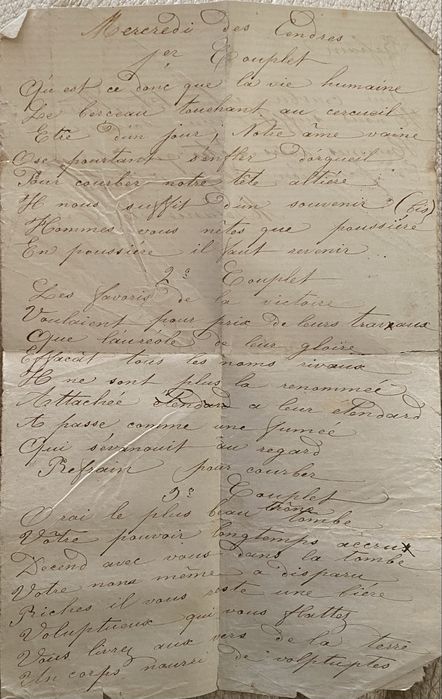 Mercredi des Cendres
1er Couplet
Qu'est ce donc que la vie humaine
Le berceau touchant au cercueil
Etre d'un jour, Notre âme vaine
Ose pourtant s'enfler d'orgueil
Pour courber notre tête altière
Il nous suffit d'un souvenir ? (bis)
Hommes vous n'êtes que poussière
En poussière il faut revenir
2e Couplet
Les favoris de la victoire
Voulaient pour prix de leurs travaux
Que l'auréole de leur gloire
Effacât tous les noms rivaux
Il ne sont plus la renommée
Attachée a leur étendard
A passé comme une fumée
Qui s'évanouit au regard
Refrain pour courber
3e Couplet
O roi le plus beau trône tombe
Vôtre pouvoir longtemps accru
Decend avec vous dans la tombe
Votre nons même a disparu
Riches il vous reste une bière
Voluptueux qui vous flattez
Vous livrez aux vers de la terre
Un corps nourri de volptuptés